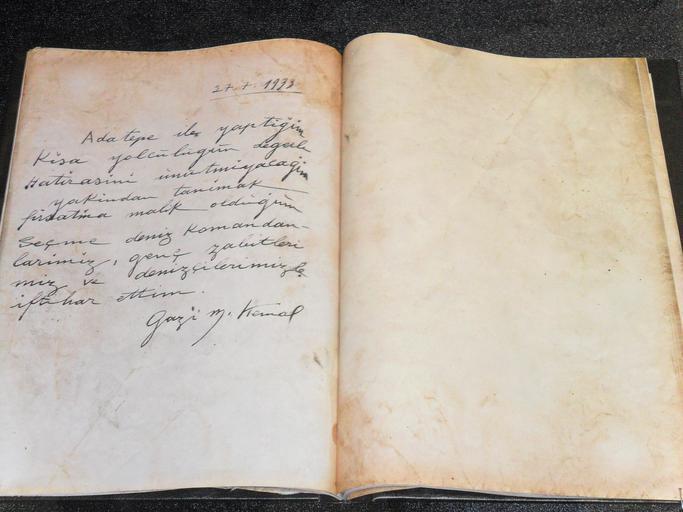 27.7.1933
Adatepe ile yaptığım
Kısa yolculuğun değerli
Hatırasını unutmıyacağım
yakından tanımak
fırsatına malik olduğum
Seçme deniz komandan-
larımız, genç zabitleri
miz ve denizcilerimizle
iftihar ettim.
Gazi M. Kemal